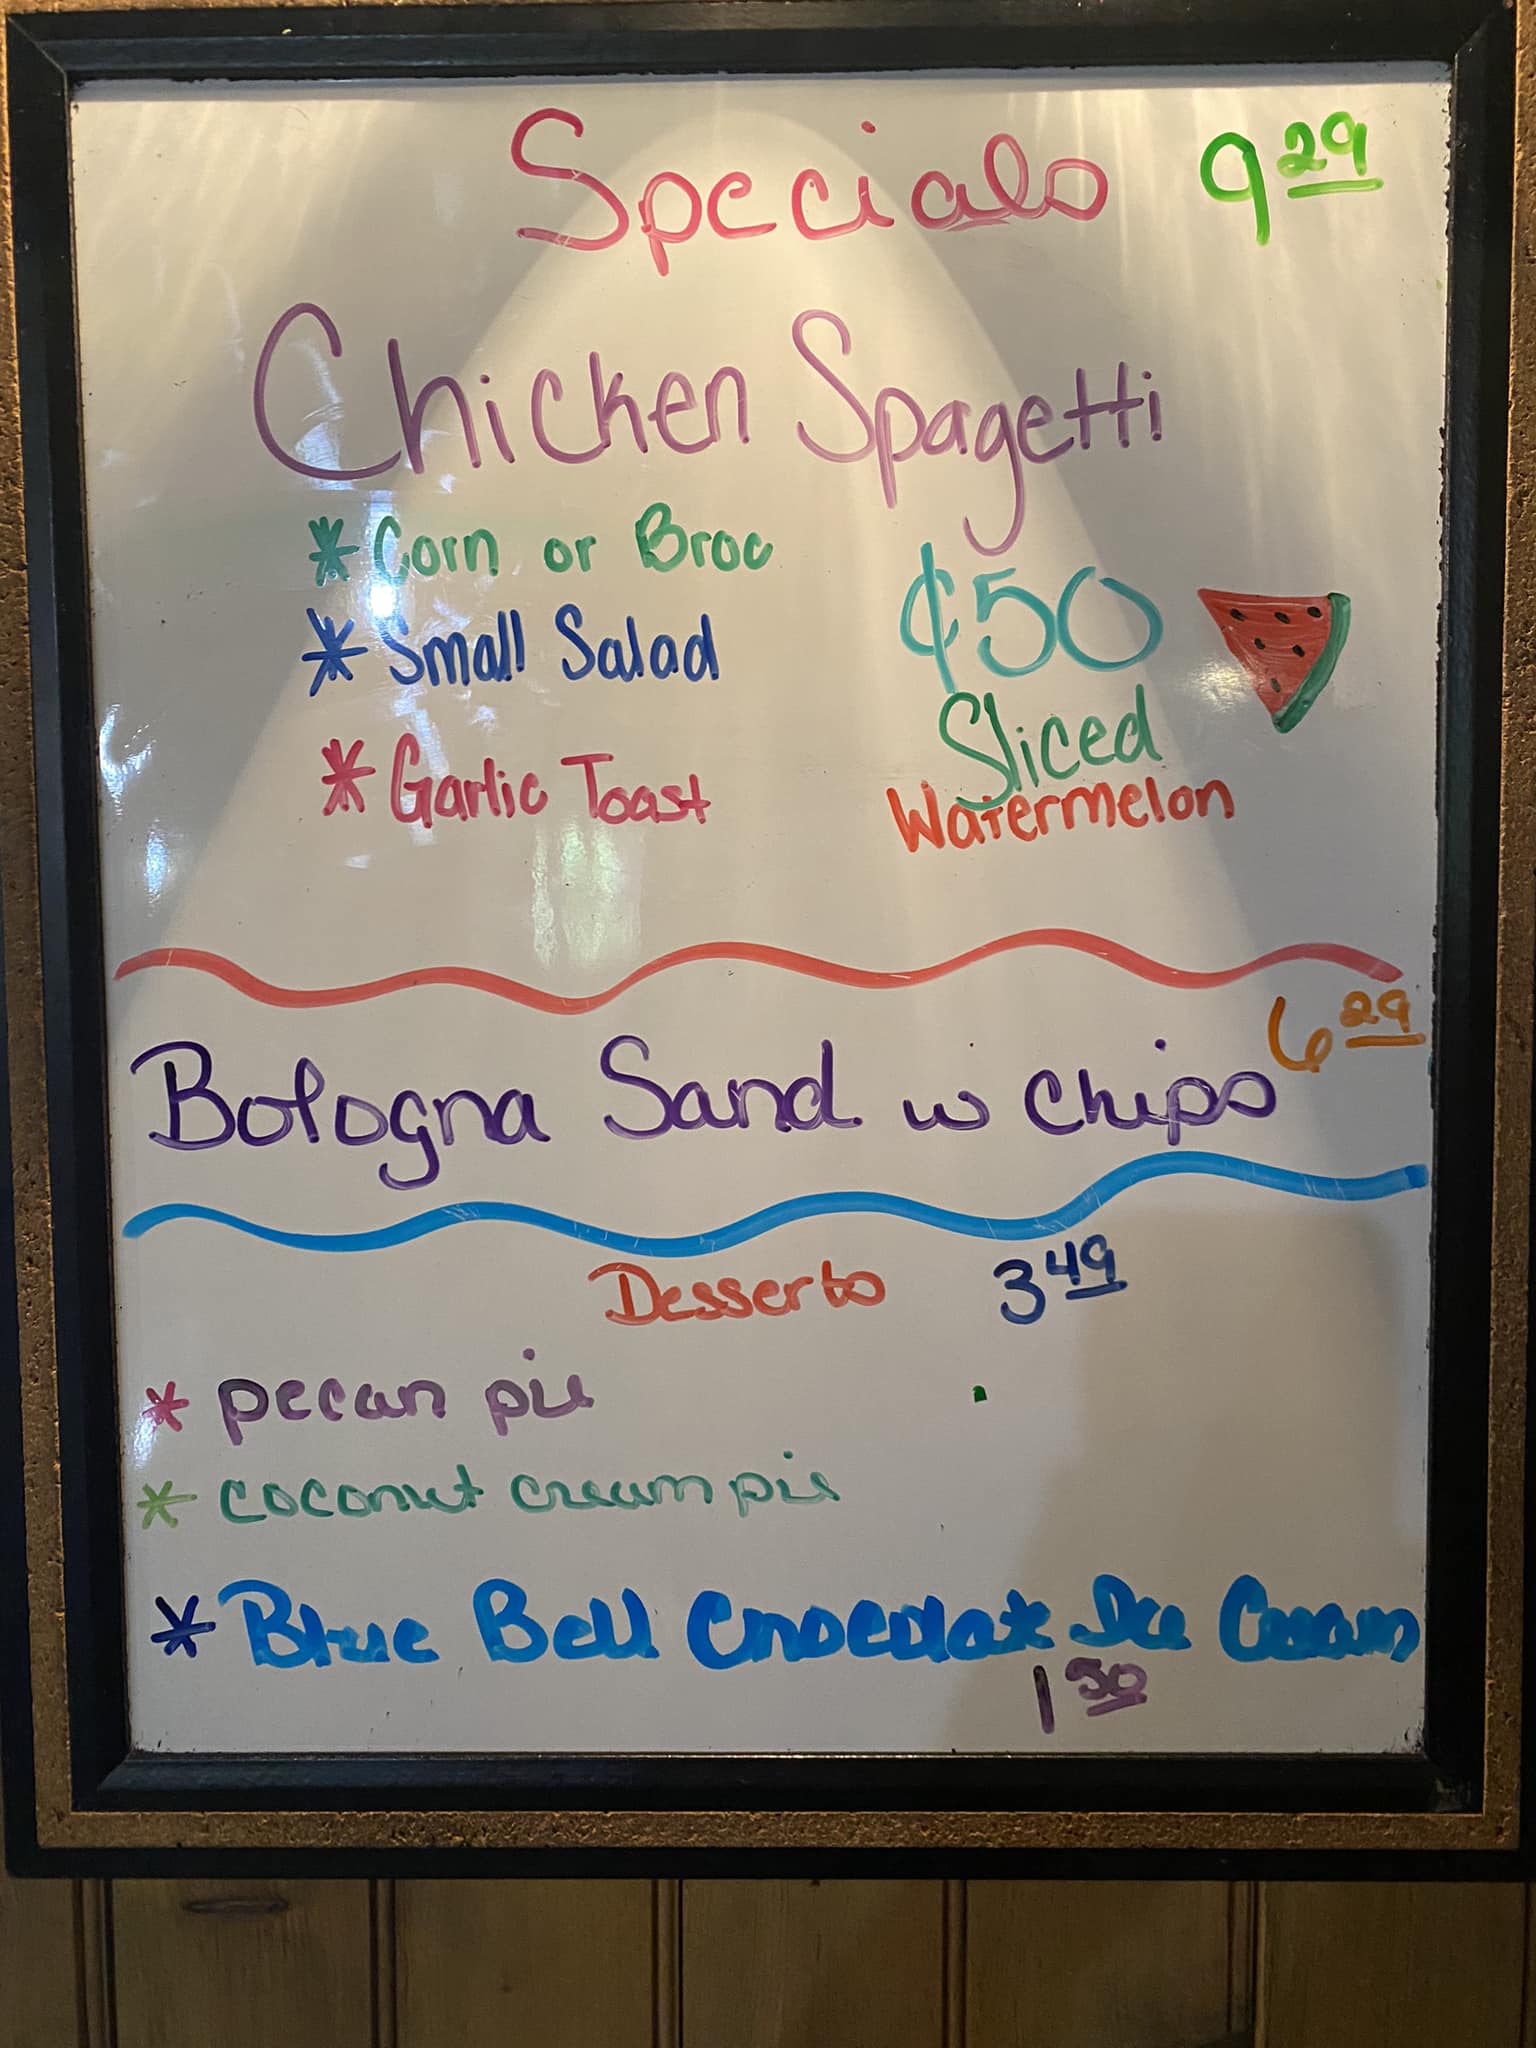 Specials 9 29
Chicken Spagetti
* Corn or Broc
* Small Salad
* Garlic Toast
¢50
Sliced
Watermelon
6 29
Bologna Sand w Chips
Desserts 3 49
* pecan pie
* coconut cream pie
* Blue Bell Chocolate Ice Cream
1 50